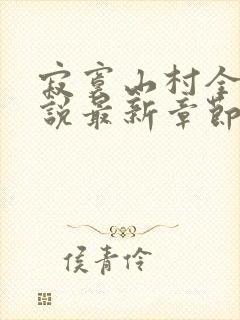 寂寞山村全
說最新章節
侯青伶